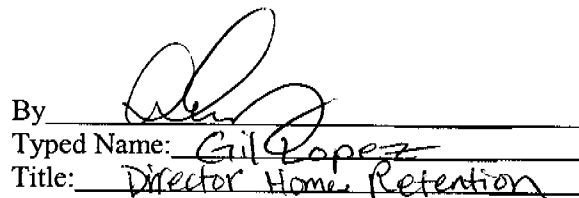 By
Typed Name: Gil Lopez
Title: Director Home Retention